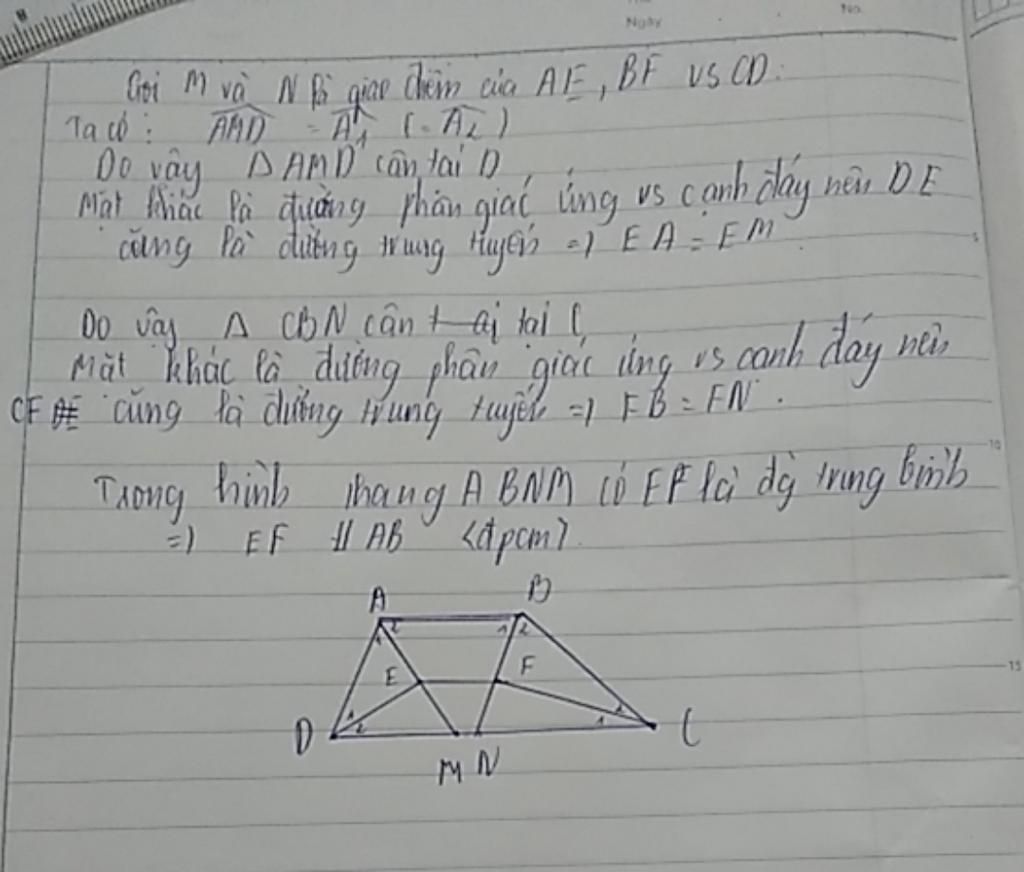 Ngày
No.
Gọi M và N là giao điểm của AE, BF vs CD.
Ta có: AMD = A1 (= A2)
Do vậy Δ AMD cân tại D,
Mặt khác là đường phân giác ứng vs cạnh đáy nên DE
cũng là đường trung tuyến => EA = EM
Do vậy Δ CBN cân t ại tại C
Mặt khác là đường phân giác ứng vs canh đáy nên
CF cũng là đường trung tuyến => FB = FN.
Trong hình thang ABNM có EF là đg trung bình
=> EF // AB (đpcm).
A B
1 2 1 2
E F
D 1 2 1 1 C
M N
5
10
15